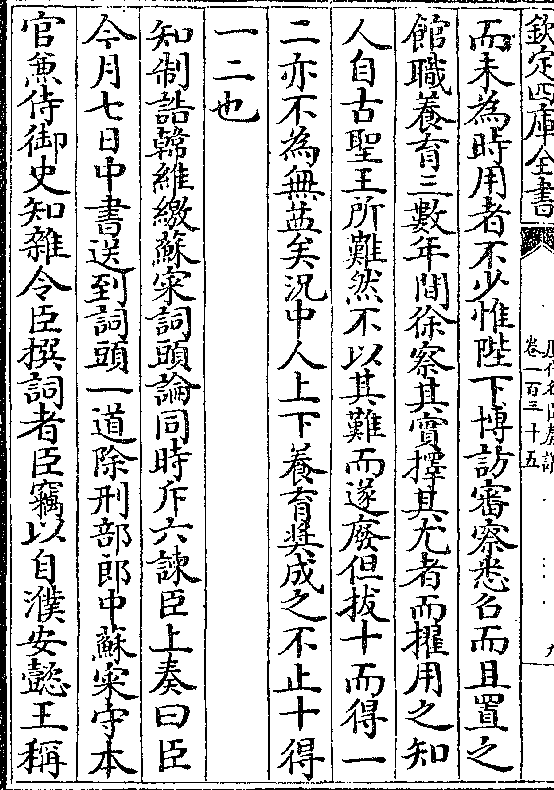 欽定四庫全書
卷一百三十五
九
而未為時用者不少惟陛下博訪審察悉召而且置之
館職養育三數年間徐察其實擇其尤者而擢用之知
人自古聖王所難然不以其難而遂廢但拔十而得一
二亦不為無益矣況中人上下養育奨成之不止十得
一二也
知制誥韓維繳蘇寀詞頭論同時斥六諫臣上奏曰臣
今月七日中書送到詞頭一道除刑部郎中蘇寀守本
官兼侍御史知雜令臣撰詞者臣竊以自濮安懿王稱